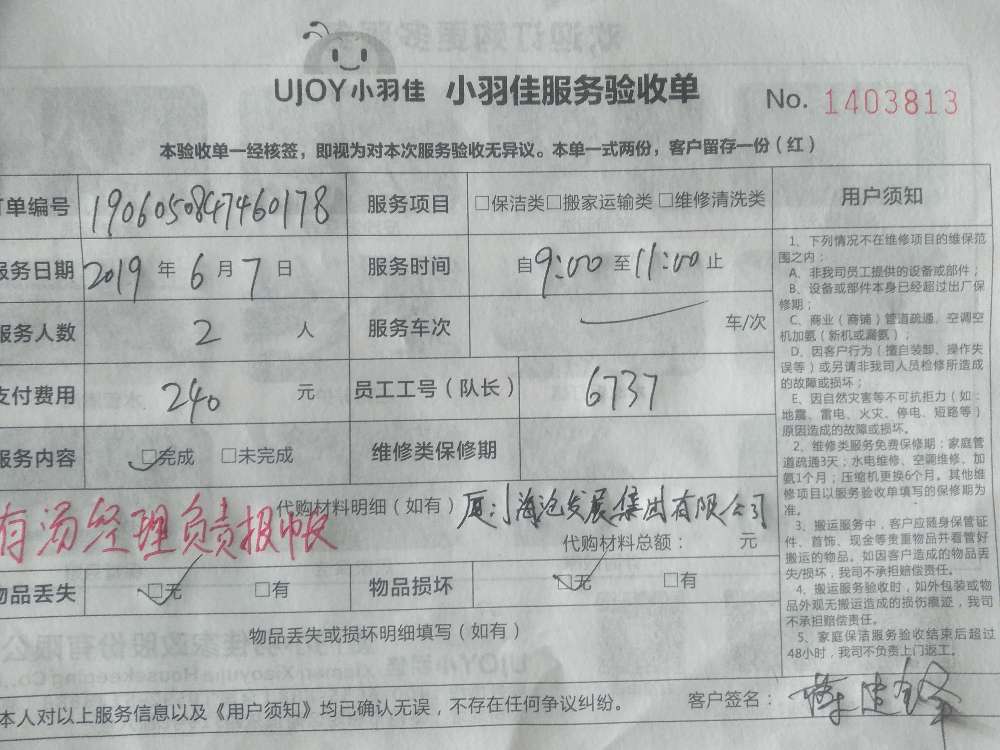 UJOY小羽佳 小羽佳服务验收单 No. 1403813
本验收单一经核签，即视为对本次服务验收无异议。本单一式两份，客户留存一份（红）
订单编号 1906050847460178 服务项目 □保洁类□搬家运输类 □维修清洗类
服务日期 2019 年 6 月 7 日 服务时间 自9:00至11:00止
服务人数 2 人 服务车次 车/次
支付费用 240 元 员工工号（队长） 6737
服务内容 □完成 □未完成 维修类保修期
代购材料明细（如有）
有汤经理负责报帐
海沧发展集团有限公司
代购材料总额： 元
物品丢失 □无 □有 物品损坏 □无 □有
物品丢失或损坏明细填写（如有）
本人对以上服务信息以及《用户须知》均已确认无误，不存在任何争议纠纷。 客户签名：
用户须知
1、下列情况不在维修项目的维保范
围之内：
A、非我司员工提供的设备或部件；
B、设备或部件本身已经超过出厂保
修期；
C、商业（商铺）管道疏通、空调空
机加氨（新机或漏氨）；
D、因客户行为（擅自装卸、操作失
误等）或另请非我司人员检修所造成
的故障或损坏；
E、因自然灾害等不可抗拒力（如：
地震、雷电、火灾、停电、短路等）
原因造成的故障或损坏。
2、维修类服务免费保修期：家庭管
道疏通3天；水电维修、空调维修、加
氨1个月；压缩机更换6个月。其他维
修项目以服务验收单填写的保修期为
准。
3、搬运服务中，客户应随身保管证
件、首饰、现金等贵重物品并看管好
搬运的物品。如因客户造成的物品丢
失/损坏，我司不承担赔偿责任。
4、搬运服务验收时，如外包装或物
品外观无搬运造成的损伤痕迹，我司
不承担赔偿责任。
5、家庭保洁服务验收结束后超过
48小时，我司不负责上门返工。